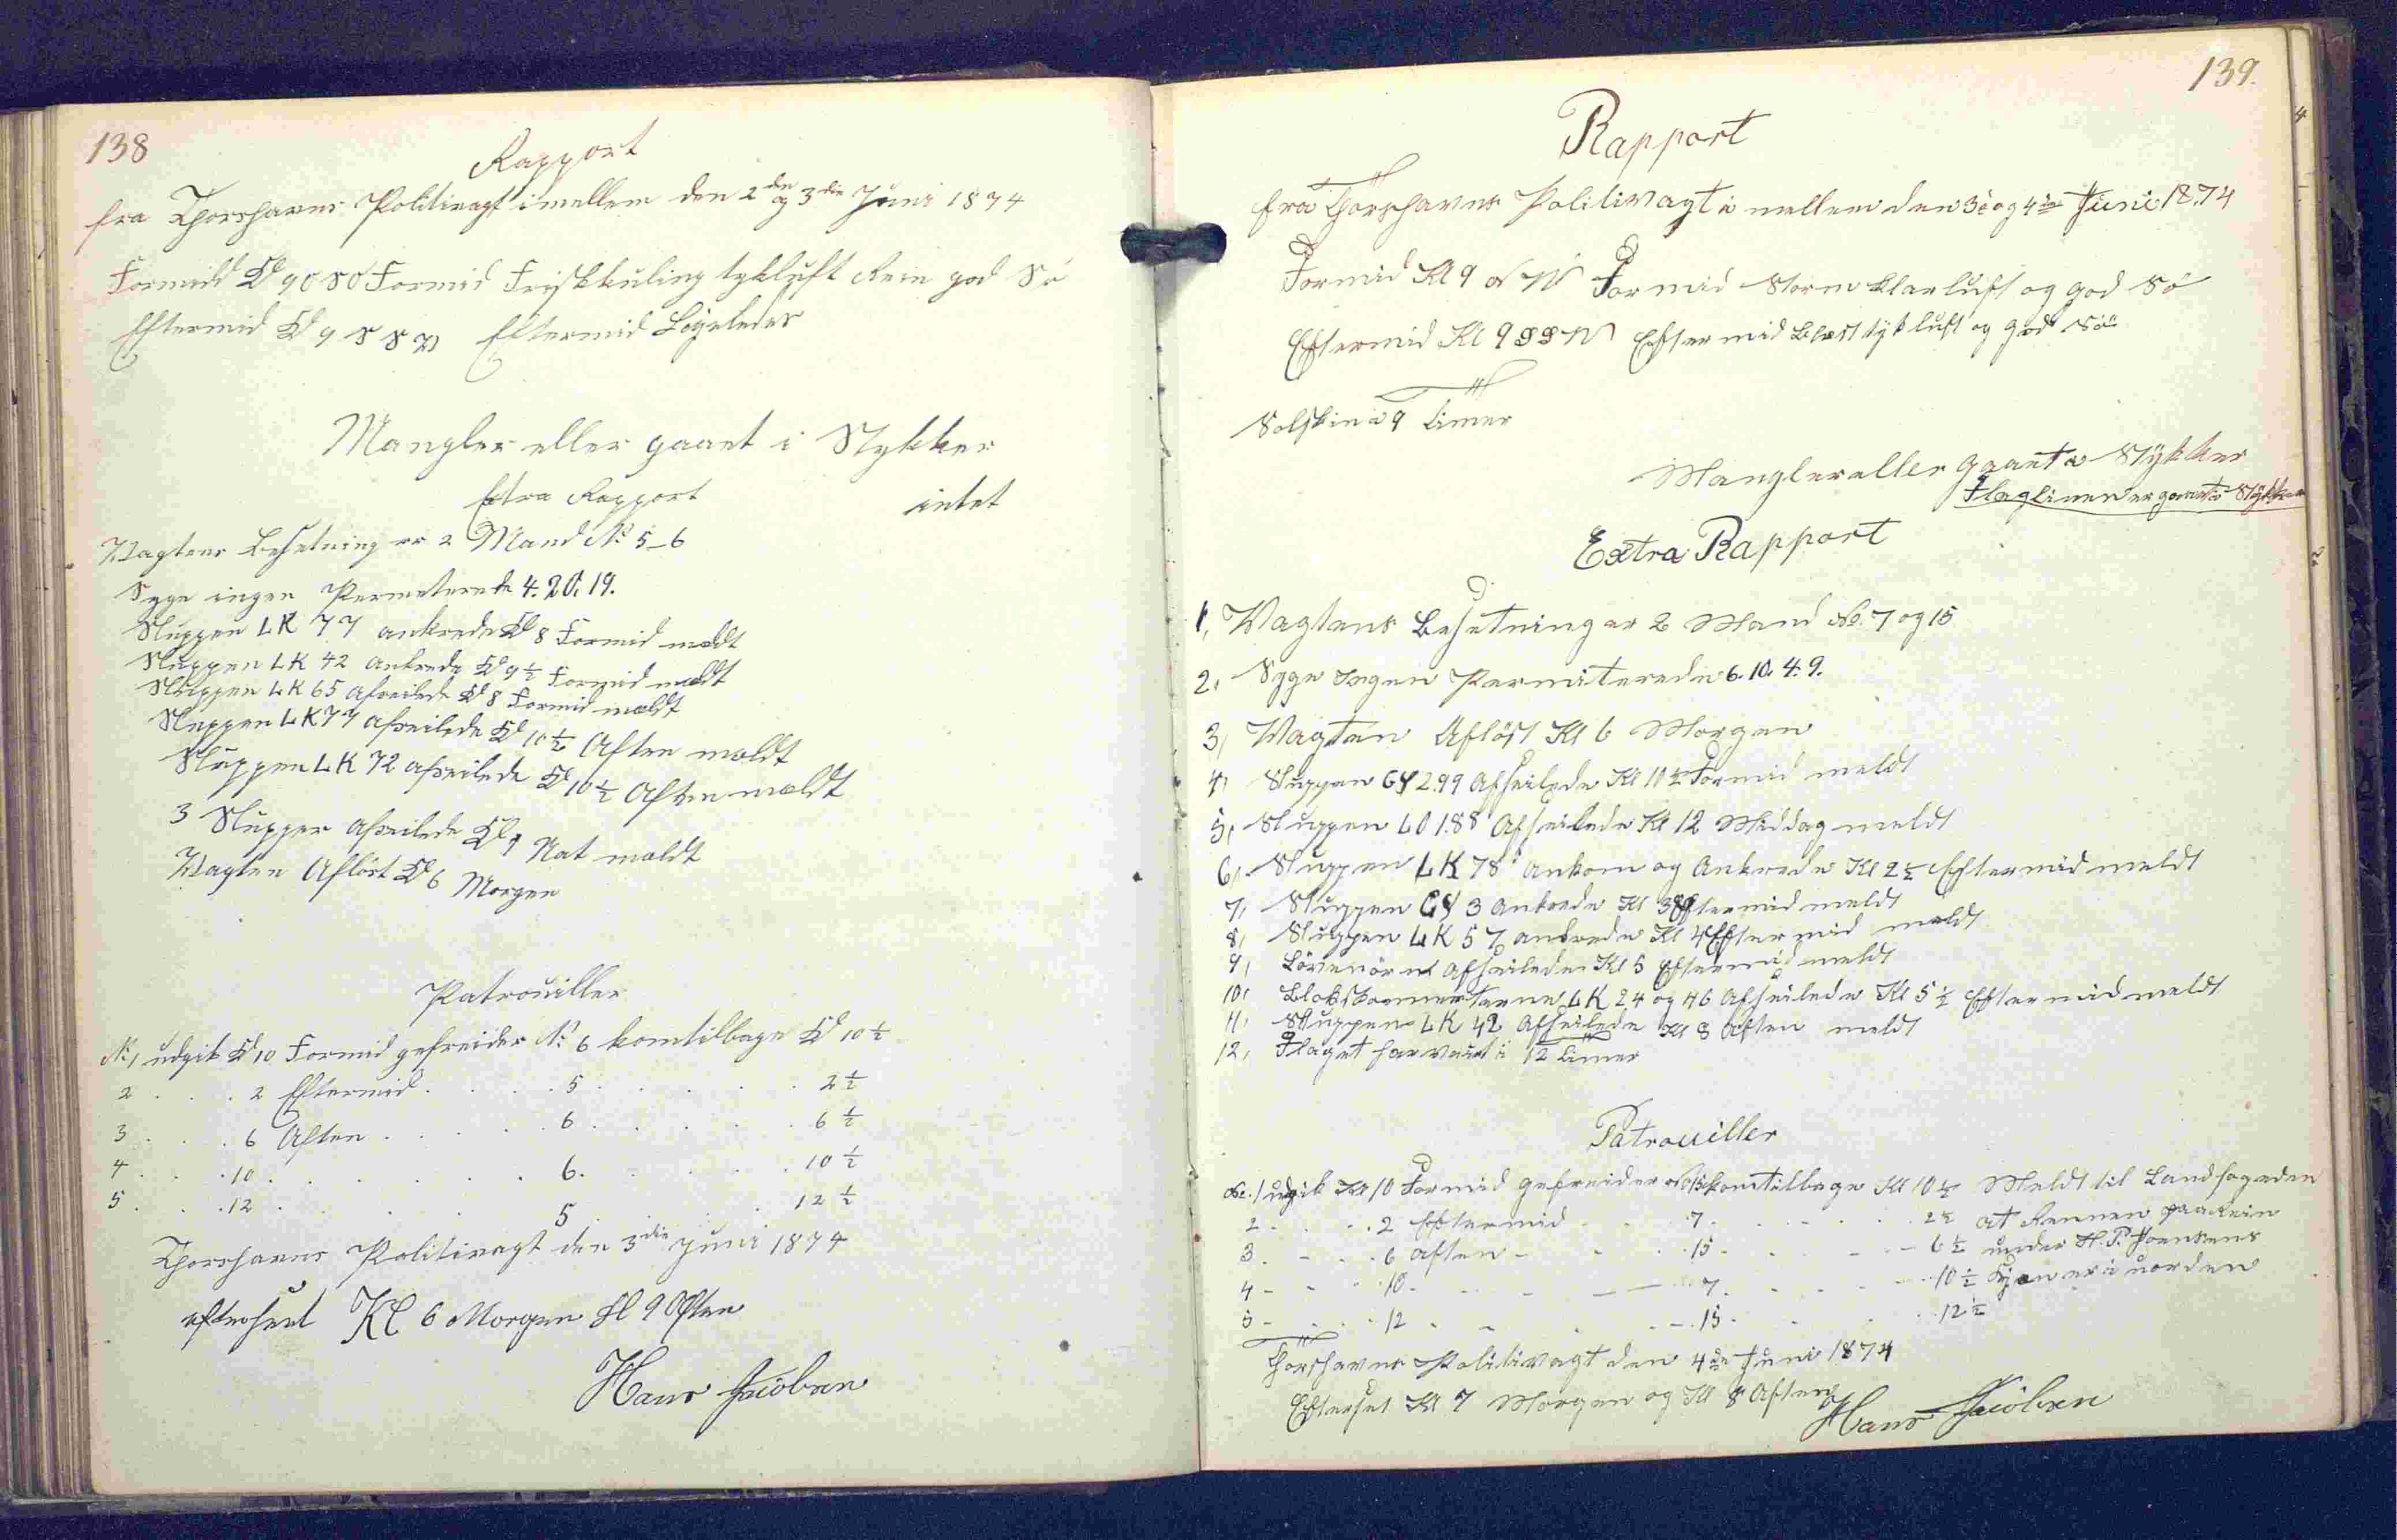 138
Rapport
fra Thorshavns Politivagt imellem den 2den og 3die Juni 1874
Formidd Kl 9 O S O Formid Friskkuling tykluft Rein god Sö
Eftermid Kl 9 S S W Eftermid Ligeledes
Mangler eller gaaet i Stykker
Extra Rapport intet
Wagtens Besetning er 2 Mand No 5-6
Syge ingen Permeterede 4. 20. 19.
Sluppen LK 77 ankrede Kl 8 Formid meldt
Sluppen LK 42 ankrede Kl 9½ Formid meldt
Sluppen LK 65 afseilede Kl 8 Formid meldt
Sluppen LK 77 afseilede Kl 10½ Aften meldt
Sluppen LK 72 afseilede Kl 10½ Aften meldt
3 Slupper afseilede Kl 9 Nat meldt
Wagten Aflöst Kl 6 Morgen
Patrouiller
No 1 udgik Kl 10 Formid gefreider No 6 kom tilbage Kl 10½
2 . . . 2 Eftermid . . . 5 . . . . 2½
3 . . . 6 Aften . . . . 6 . . . . 6½
4 . . . 10 . . . . . . 6 . . . . 10½
5 . . . 12 . . . . . 5 . . . . 12½
Thorshavns Politivagt den 3die Juni 1874
efterseet Kl 6 Morgen Kl 9 Aften
Hans Jacobsen
139.
Rapport
fra Thorshavns Politivagt i mellem den 3die og 4de Juni 1874
Formid Kl 9 Formid Storm klarluft og god Sö
Eftermid Kl 9 S S W Eftermid Blæst tykluft og god Sö
Solskin i 9 Timer
Mangler eller gaaet i Stykker
Flaglinen er gaaet i Stykker
Extra Rapport
1, Wagtens Besetning er 2 Mand No. 7 og 15
2, Syge Ingen Permiterede 6. 10. 4. 9.
3, Wagten Aflöst Kl 6 Morgen
4, Sluppen GY 299 Afseilede Kl 10½ Formid meldt
5, Sluppen LO 188 Afseilede Kl 12 Middag meldt
6, Sluppen LK 78 Ankom og Ankrede Kl 2½ Eftermid meldt
7, Sluppen GY 3 Ankrede Kl 3 Eftermid meldt
8, Sluppen LK 57 ankrede Kl 4 Eftermid meldt
9, Lövenörn afseilede Kl 5 Eftermid meldt
10, LK 24 og 46 Afseilede Kl 5½ Eftermid meldt
11, Sluppen LK 42 Afseilede Kl 8 Aften meldt
12, Flaget har vaiet i 12 Timer
Patrouiller
No. 1 udgik Kl 10 Formid gefreider No 15 kom tilbage Kl 10½ Meldt til Landfogeden
2 - . . . 2 Eftermid . . . 7 . . . . 2½ at Rennen paa Rein
3 . - . . 6 Aften - . . 15 - . . . 6½ under H. P. Joensens
4 - . . 10 - . . . - 7 . . . . 10½ er i uorden
5 - . . . 12 . - . . - 15 . . . . 12½
Thorshavns Politivagt den 4de Juni 1874
Efterset Kl 7 Morgen og Kl 8 Aften
Hans Jacobsen